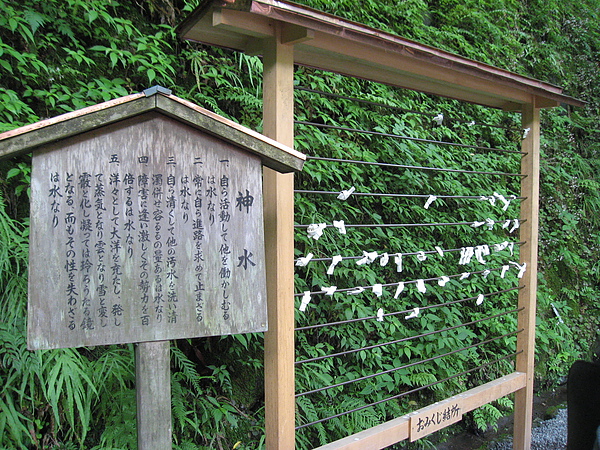 神水
一、自ら活動して他を働かしむる
は水なり
二、常に自ら進路を求めて止まざる
は水なり
三、自ら清くして他の汚水を洗い清
濁併せ容るるの量あるは水なり
四、障害に逢い激しくその勢力を百
倍するは水なり
五、洋々として大洋を充たし 発し
て蒸気となり雲となり雪と変じ
霰と化し凝っては玲ろうたる鏡
となる、而もその性を失わざる
は水なり
おみくじ結所